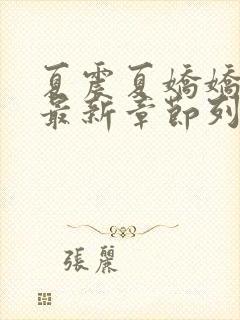 夏震夏嬌嬌
最新章節列
張麗